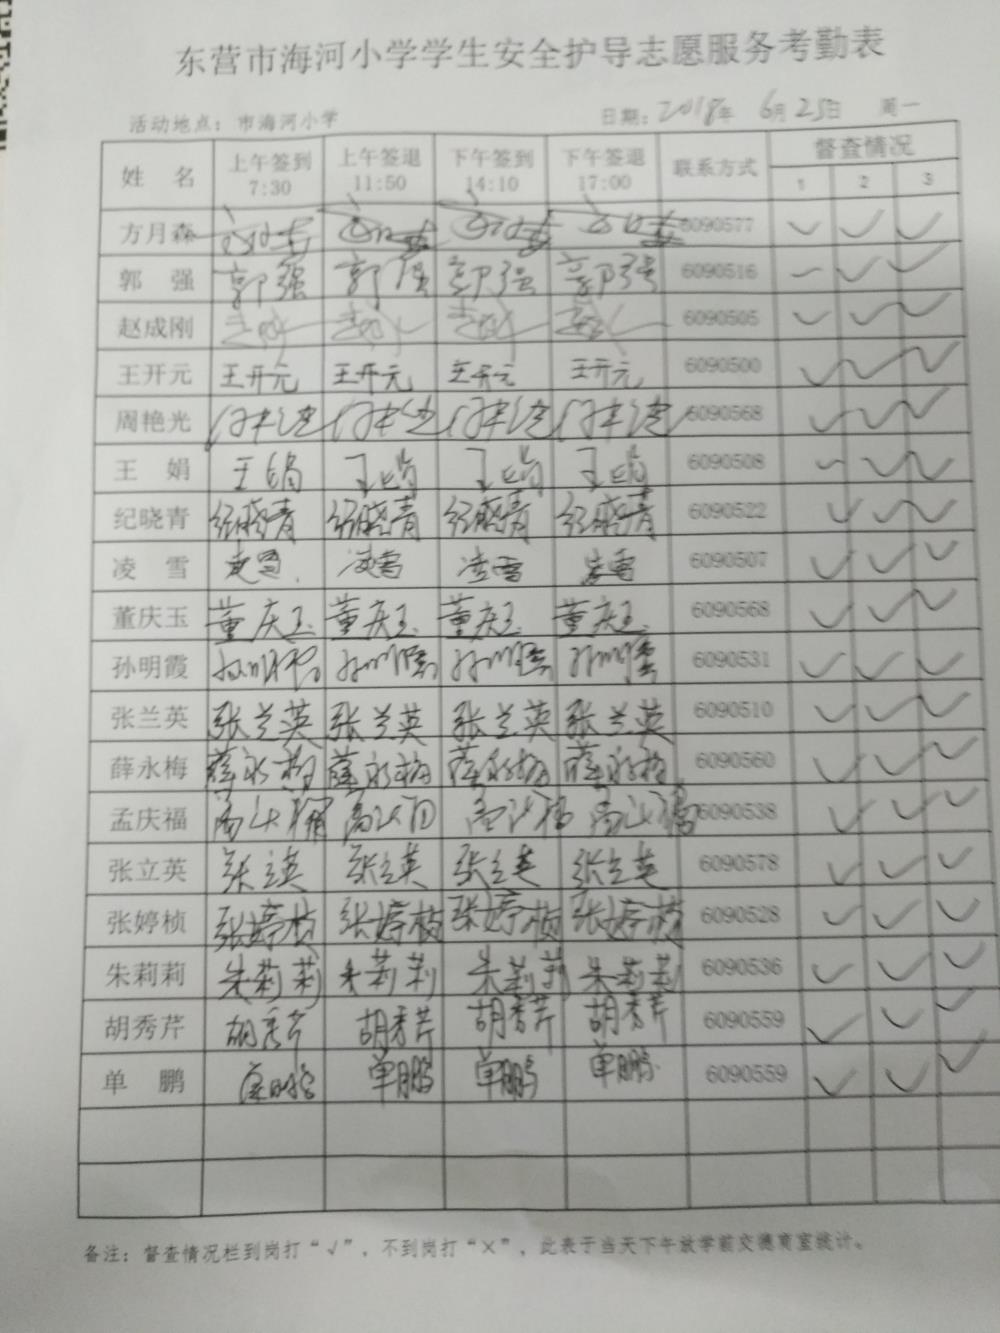 东营市海河小学学生安全护导志愿服务考勤表
活动地点：市海河小学 日期：2018年 6月25日 周一
姓 名 上午签到 7:30 上午签退 11:50 下午签到 14:10 下午签退 17:00 联系方式 督查情况
1 2 3
方月森 6090577 ✓ ✓ ✓
郭 强 郭强 郭强 郭强 郭强 6090516 ✓ ✓ ✓
赵成刚 6090505 ✓ ✓ ✓
王开元 王开元 王开元 王开元 王开元 6090500 ✓ ✓ ✓
周艳光 6090568 ✓ ✓ ✓
王 娟 王娟 王娟 王娟 王娟 6090508 ✓ ✓ ✓
纪晓青 纪晓青 纪晓青 纪晓青 纪晓青 6090522 ✓ ✓ ✓
凌 雪 凌雪 凌雪 凌雪 凌雪 6090507 ✓ ✓ ✓
董庆玉 董庆玉 董庆玉 董庆玉 董庆玉 6090568 ✓ ✓ ✓
孙明霞 孙明霞 孙明霞 孙明霞 孙明霞 6090531 ✓ ✓ ✓
张兰英 张兰英 张兰英 张兰英 张兰英 6090510 ✓ ✓ ✓
薛永梅 薛永梅 薛永梅 薛永梅 薛永梅 6090560 ✓ ✓ ✓
孟庆福 6090538 ✓ ✓ ✓
张立英 张立英 张立英 张立英 张立英 6090578 ✓ ✓ ✓
张婷桢 张婷桢 张婷桢 张婷桢 张婷桢 6090528 ✓ ✓ ✓
朱莉莉 朱莉莉 朱莉莉 朱莉莉 朱莉莉 6090536 ✓ ✓ ✓
胡秀芹 胡秀芹 胡秀芹 胡秀芹 胡秀芹 6090559 ✓ ✓ ✓
单 鹏 单鹏 单鹏 单鹏 6090559 ✓ ✓ ✓
备注：督查情况栏到岗打“√”，不到岗打“×”，此表于当天下午放学前交德育室统计。